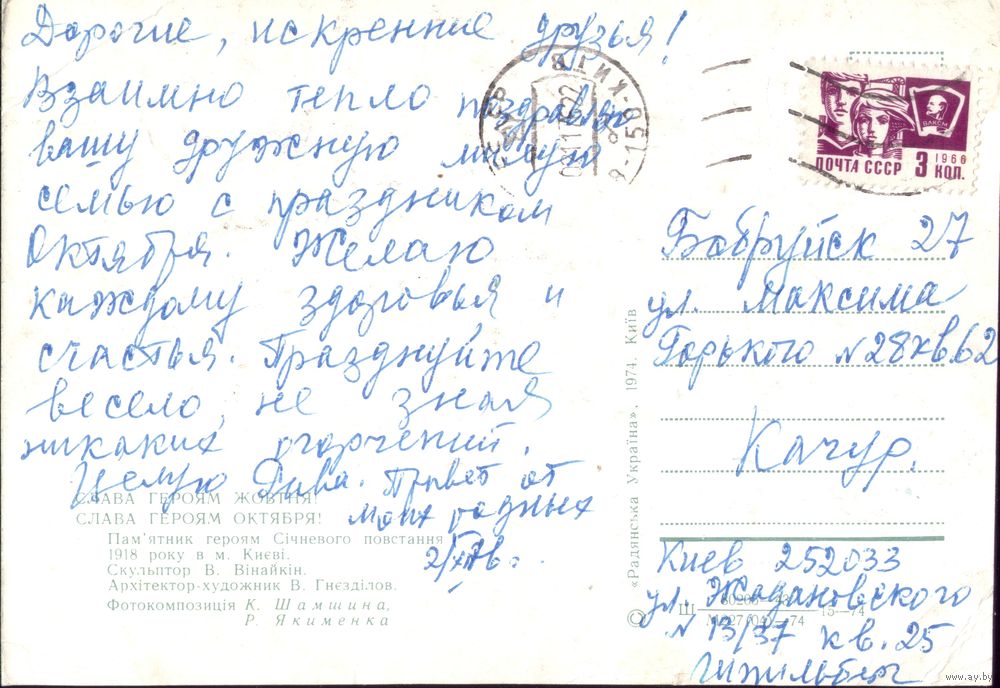 Дорогие, искренние друзья!
Взаимно тепло поздравляю
вашу дружную милую
семью с праздником
Октября. Желаю
каждому здоровья и
счастья. Празднуйте
весело, не зная
никаких огорчений.
Целую Дива. Привет от
моих родных
СЛАВА ГЕРОЯМ ЖОВТНЯ!
СЛАВА ГЕРОЯМ ОКТЯБРЯ!
Пам'ятник героям Січневого повстання
1918 року в м. Києві.
Скульптор В. Вінайкін.
Архітектор-художник В. Гнєзділов.
Фотокомпозиція К. Шамшина,
Р. Якименка
«Радянська Україна». 1974. Київ
ПОЧТА СССР 3 КОП.
1966
ВЛКСМ
Бобруйск 27
ул. Максима
Горького N 28 кв. 62
Качур.
Киев 252033
ул. Жадановского
N 13/37 кв. 25
Гижильберг
www.ay.by